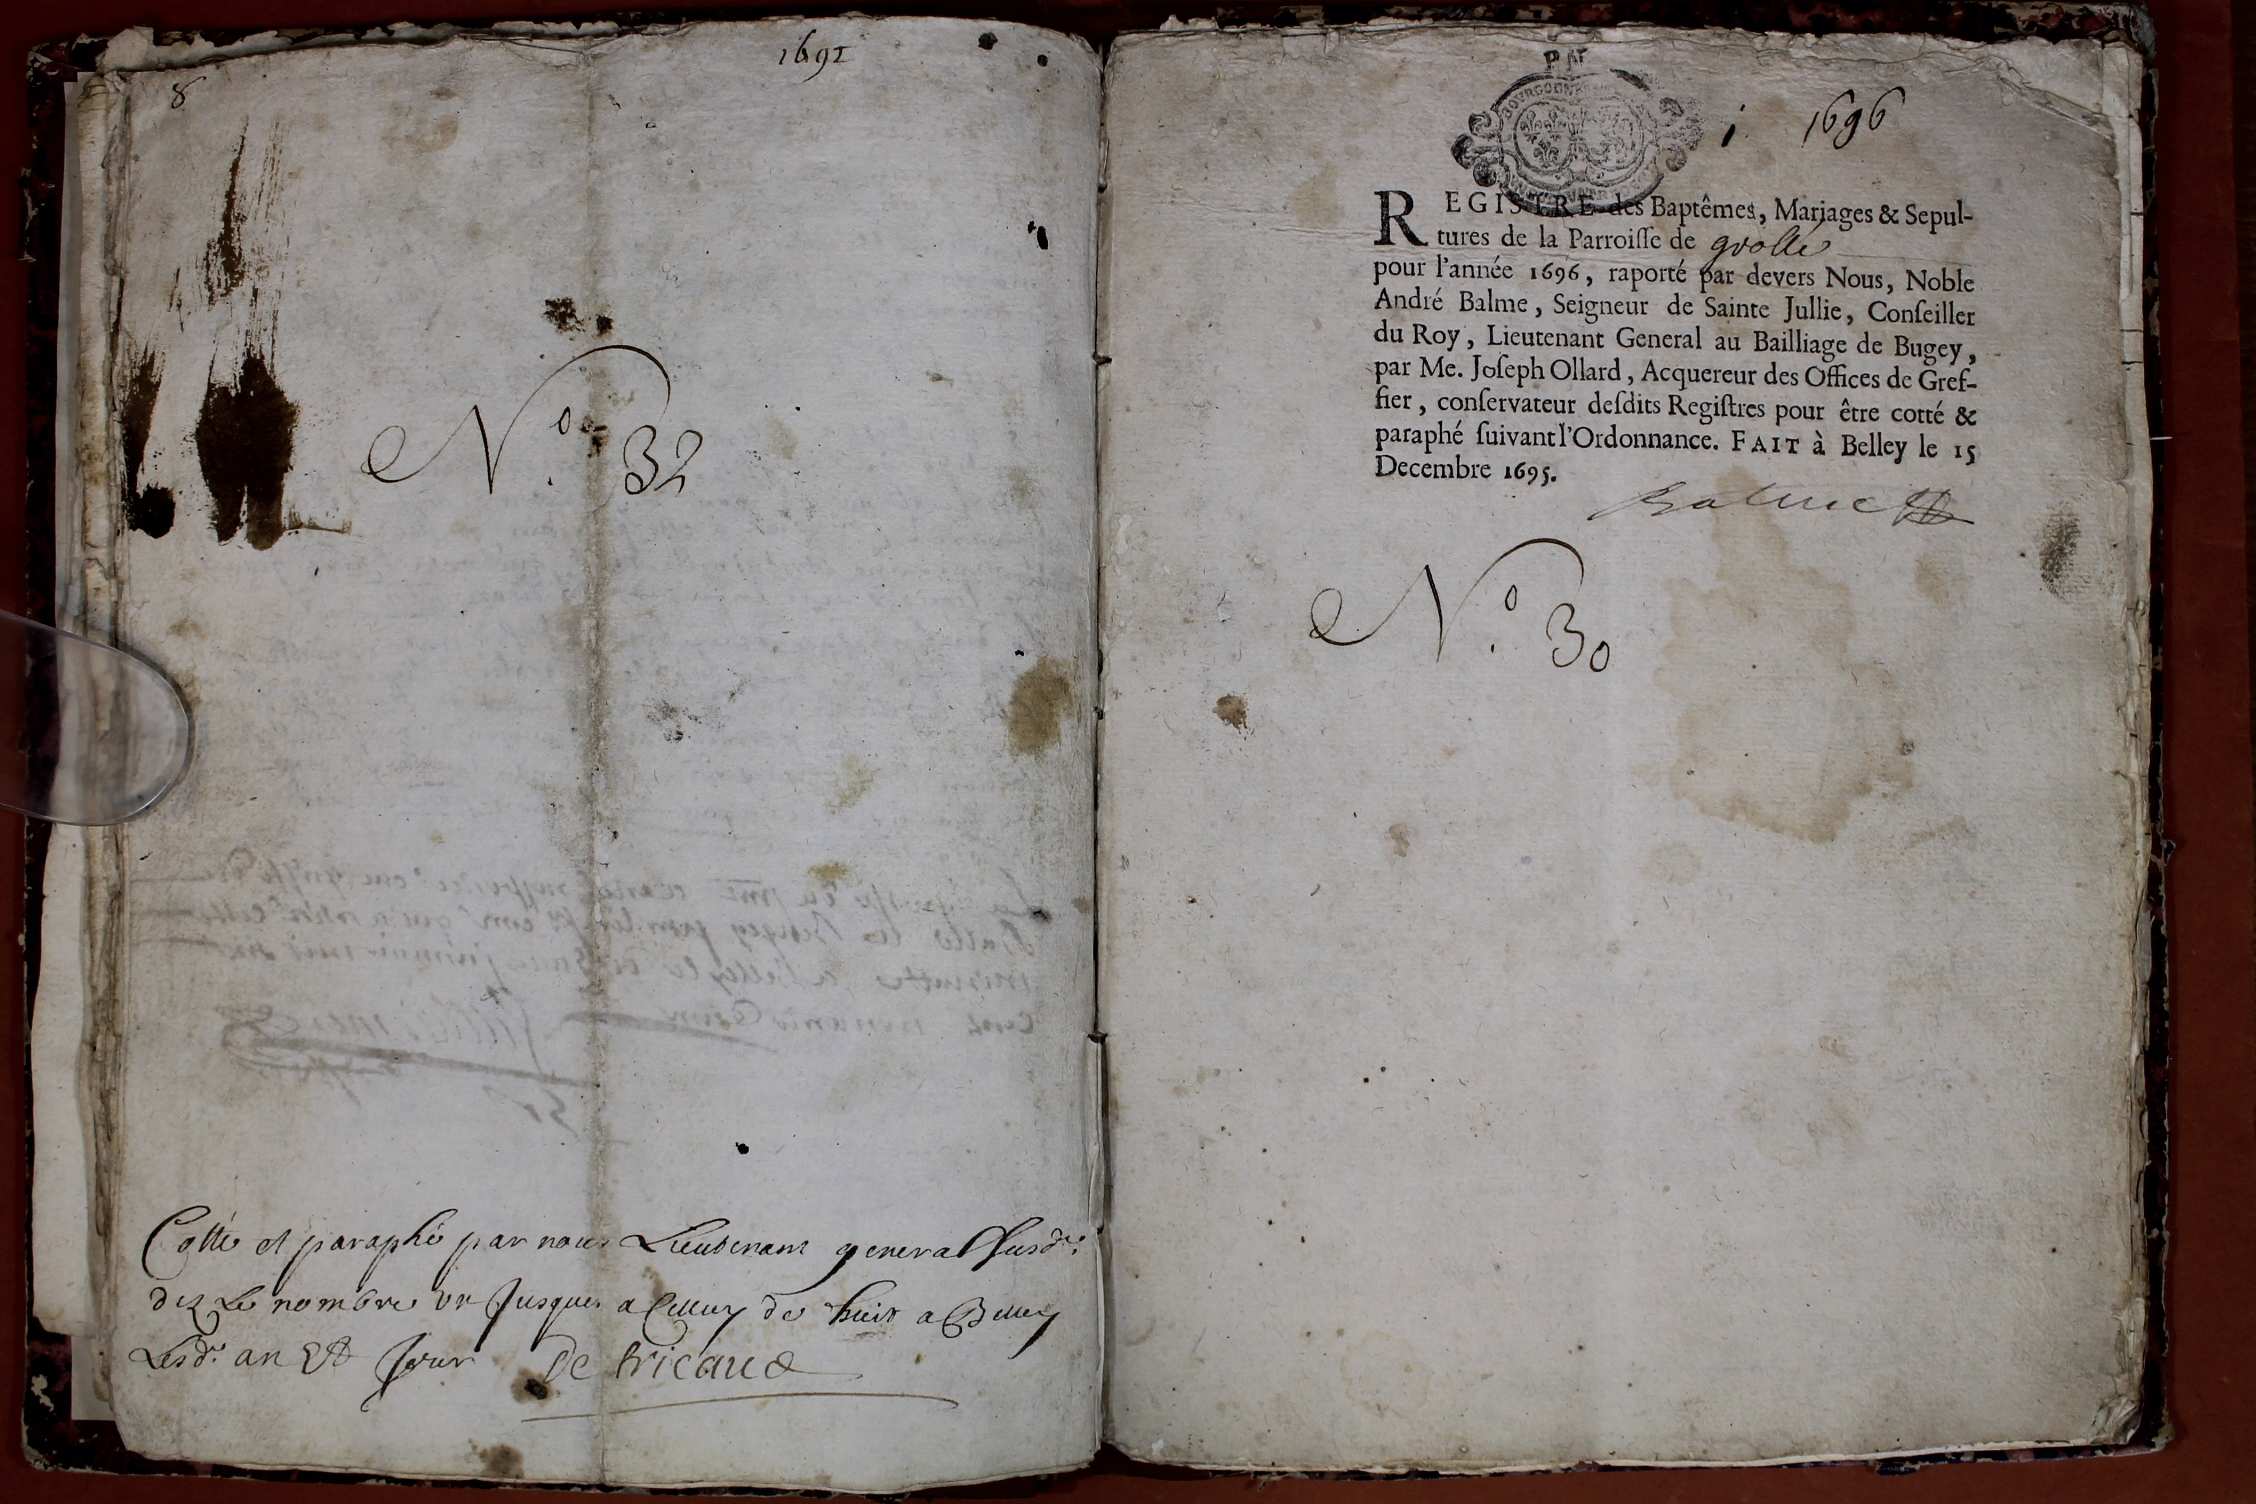 8
1691
N.o 32
Cotté et paraphé par nous Lieutenant general susd.
dez Le nombre un jusques a Celluy de huit a Belley
Lesd. an & Jour De tricaud
PNT
BOURGOGNE
i 1696
REGISTRE des Baptêmes, Mariages & Sepul-
tures de la Parroisse de grolle
pour l'année 1696, raporté par devers Nous, Noble
André Balme, Seigneur de Sainte Jullie, Conseiller
du Roy, Lieutenant General au Bailliage de Bugey,
par Me. Joseph Ollard, Acquereur des Offices de Gref-
fier, conservateur desdits Registres pour être cotté &
paraphé suivant l'Ordonnance. FAIT à Belley le 15
Decembre 1695.
Balme
N.o 30